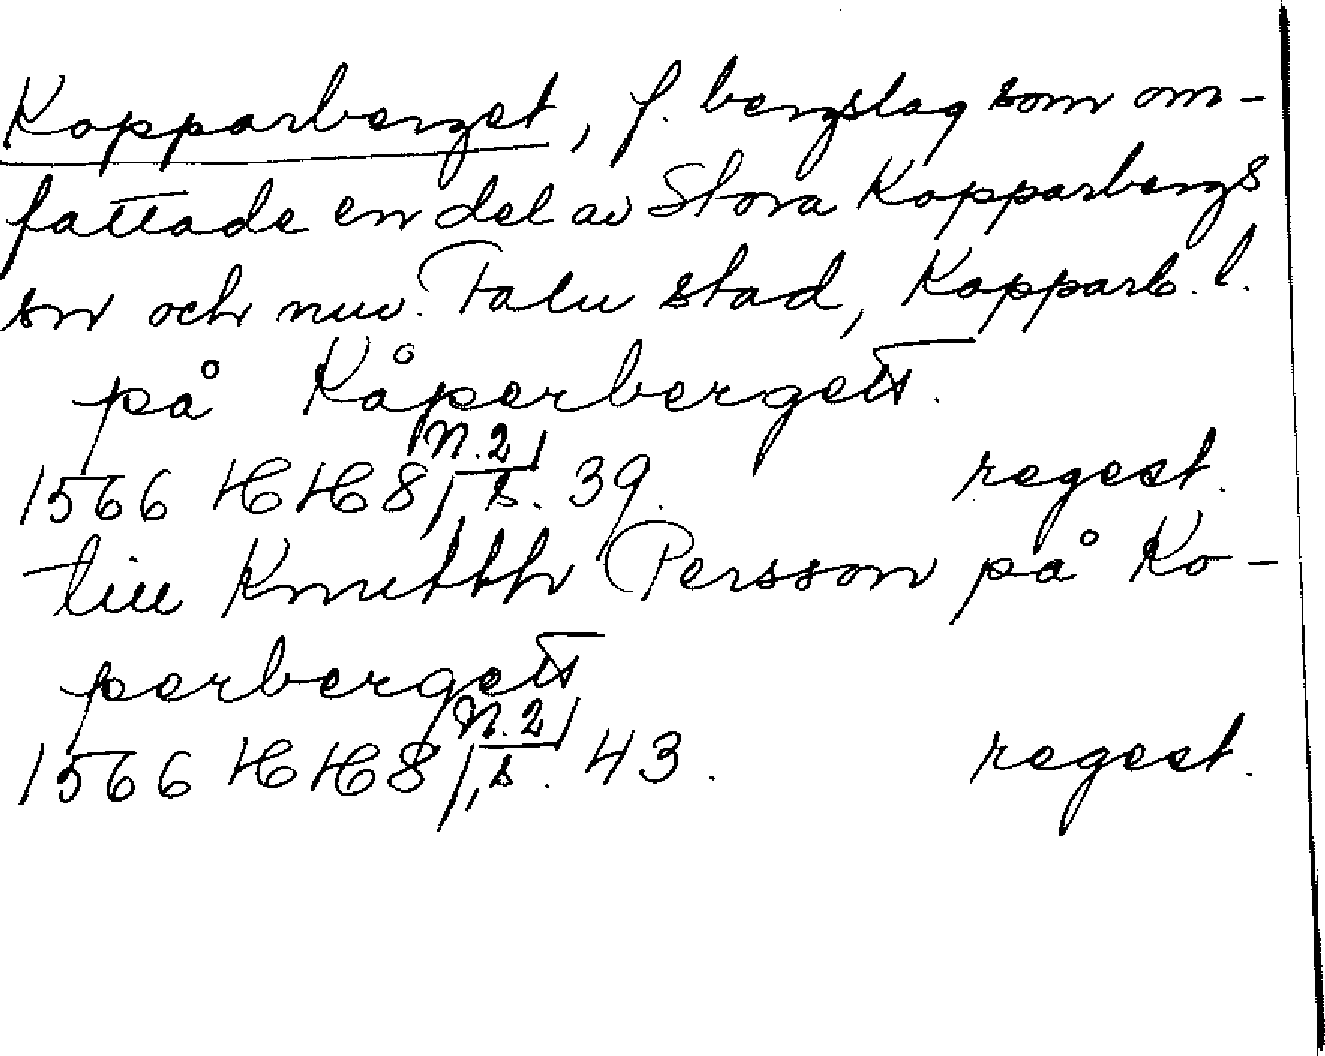 Kopparberget, f. bergslag som om-
fattade en del av Stora Kopparbergs
sn och nuv. Falu stad, Kopparb. l.
på Kåperbergett.
N.2
1566 HH 8, s. 39. regest.
till Knutth Persson på Ko-
perbergett
N.2
1566 HH 8, s. 43. regest.